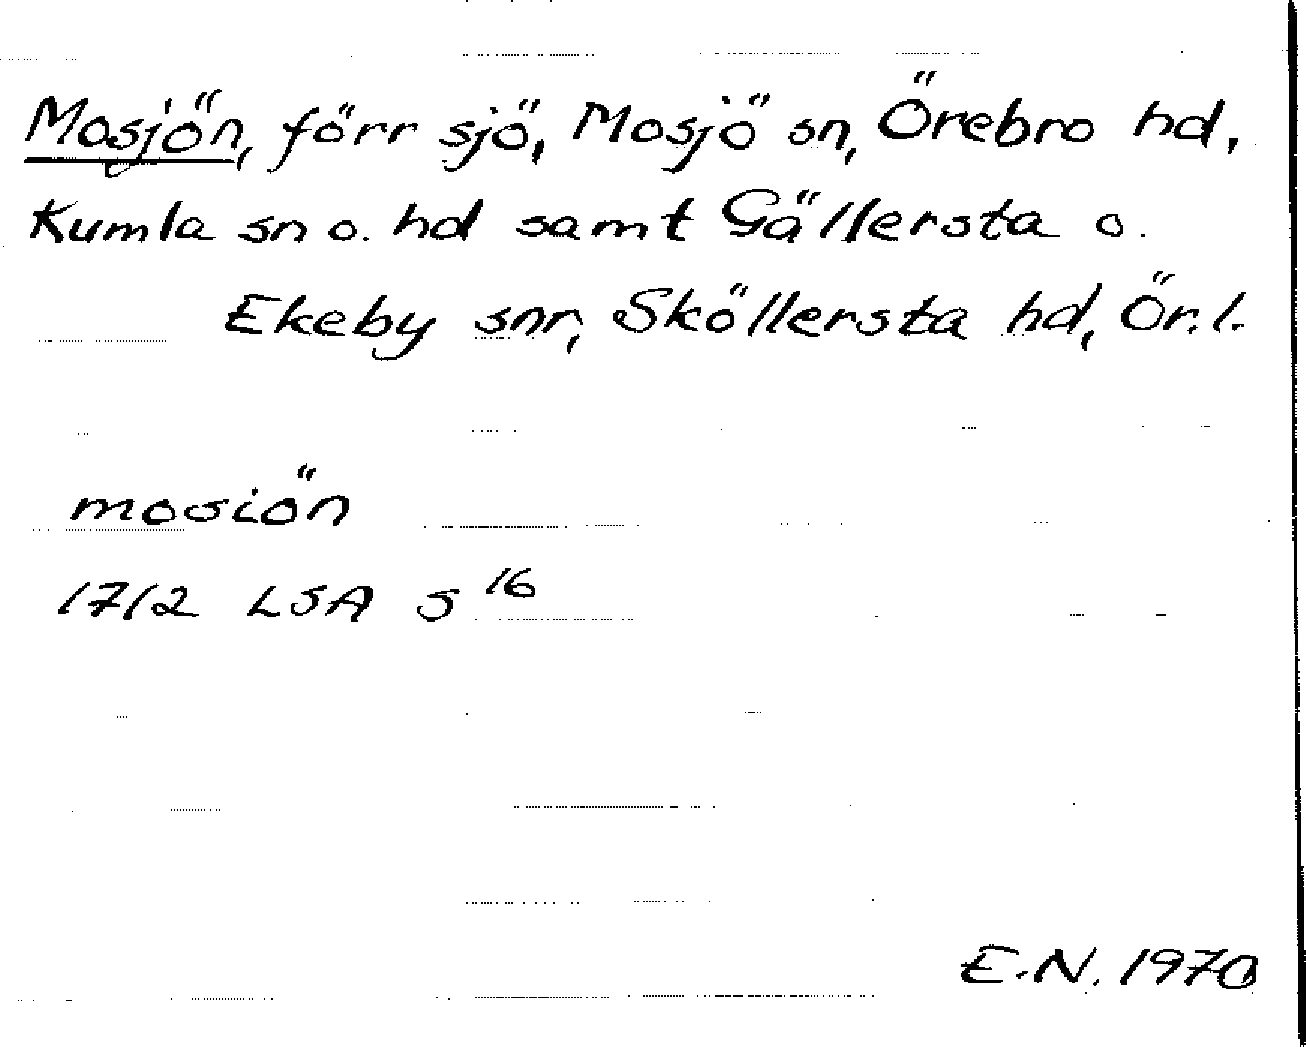 Mosjön, förr sjö, Mosjö sn, Örebro hd,
Kumla sn o. hd samt Gällersta o.
Ekeby snr, Sköllersta hd, Ör. l.
mosiön
1712 LSA S 16
E.N. 1970